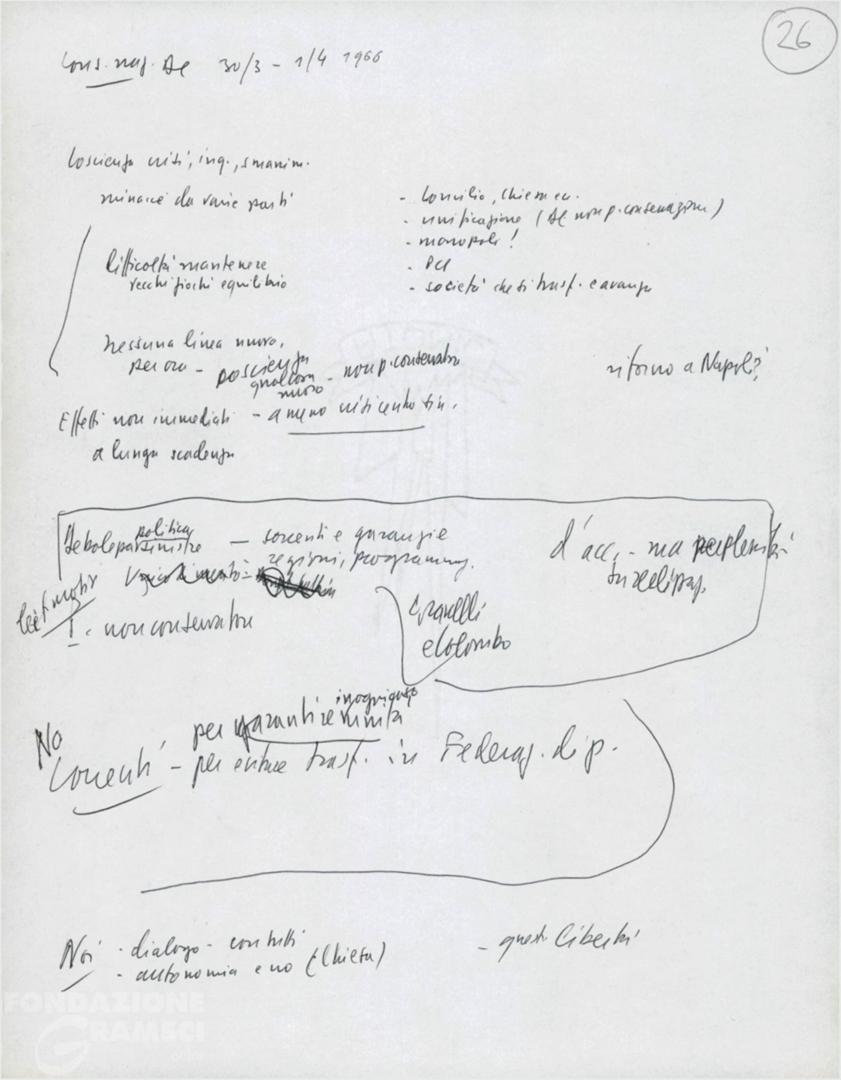 26
Cons. naz. DC 30/3 - 1/4 1966
Coscienza crisi, inq., smarrim.
minacce da varie parti
- Concilio, Chiesa ecc.
- unificazione (DC non p. conservazione)
- monopoli!
- PCI
- società che si trasf. e avanza
Difficoltà mantenere
vecchi giochi equilibrio
nessuna linea nuova,
per ora - coscienza
qualcosa
nuovo - non p. conservatore
ritorno a Napoli?
Effetti non immediati - a meno crisi centro sin.
a lunga scadenza
Debole politica
sinistre - correnti e garanzie
regioni, programmaz.
d'acc. - ma perplessità
leit motiv
I - non conservatore
Granelli
e Colombo
No
Correnti - per garantire inoquigusto unità
- per evitare trasf. in Federaz. di p.
Noi - dialogo - con tutti
- autonomia e no (Chiesa)
- questi Libertà
FONDAZIONE
GRAMSCI